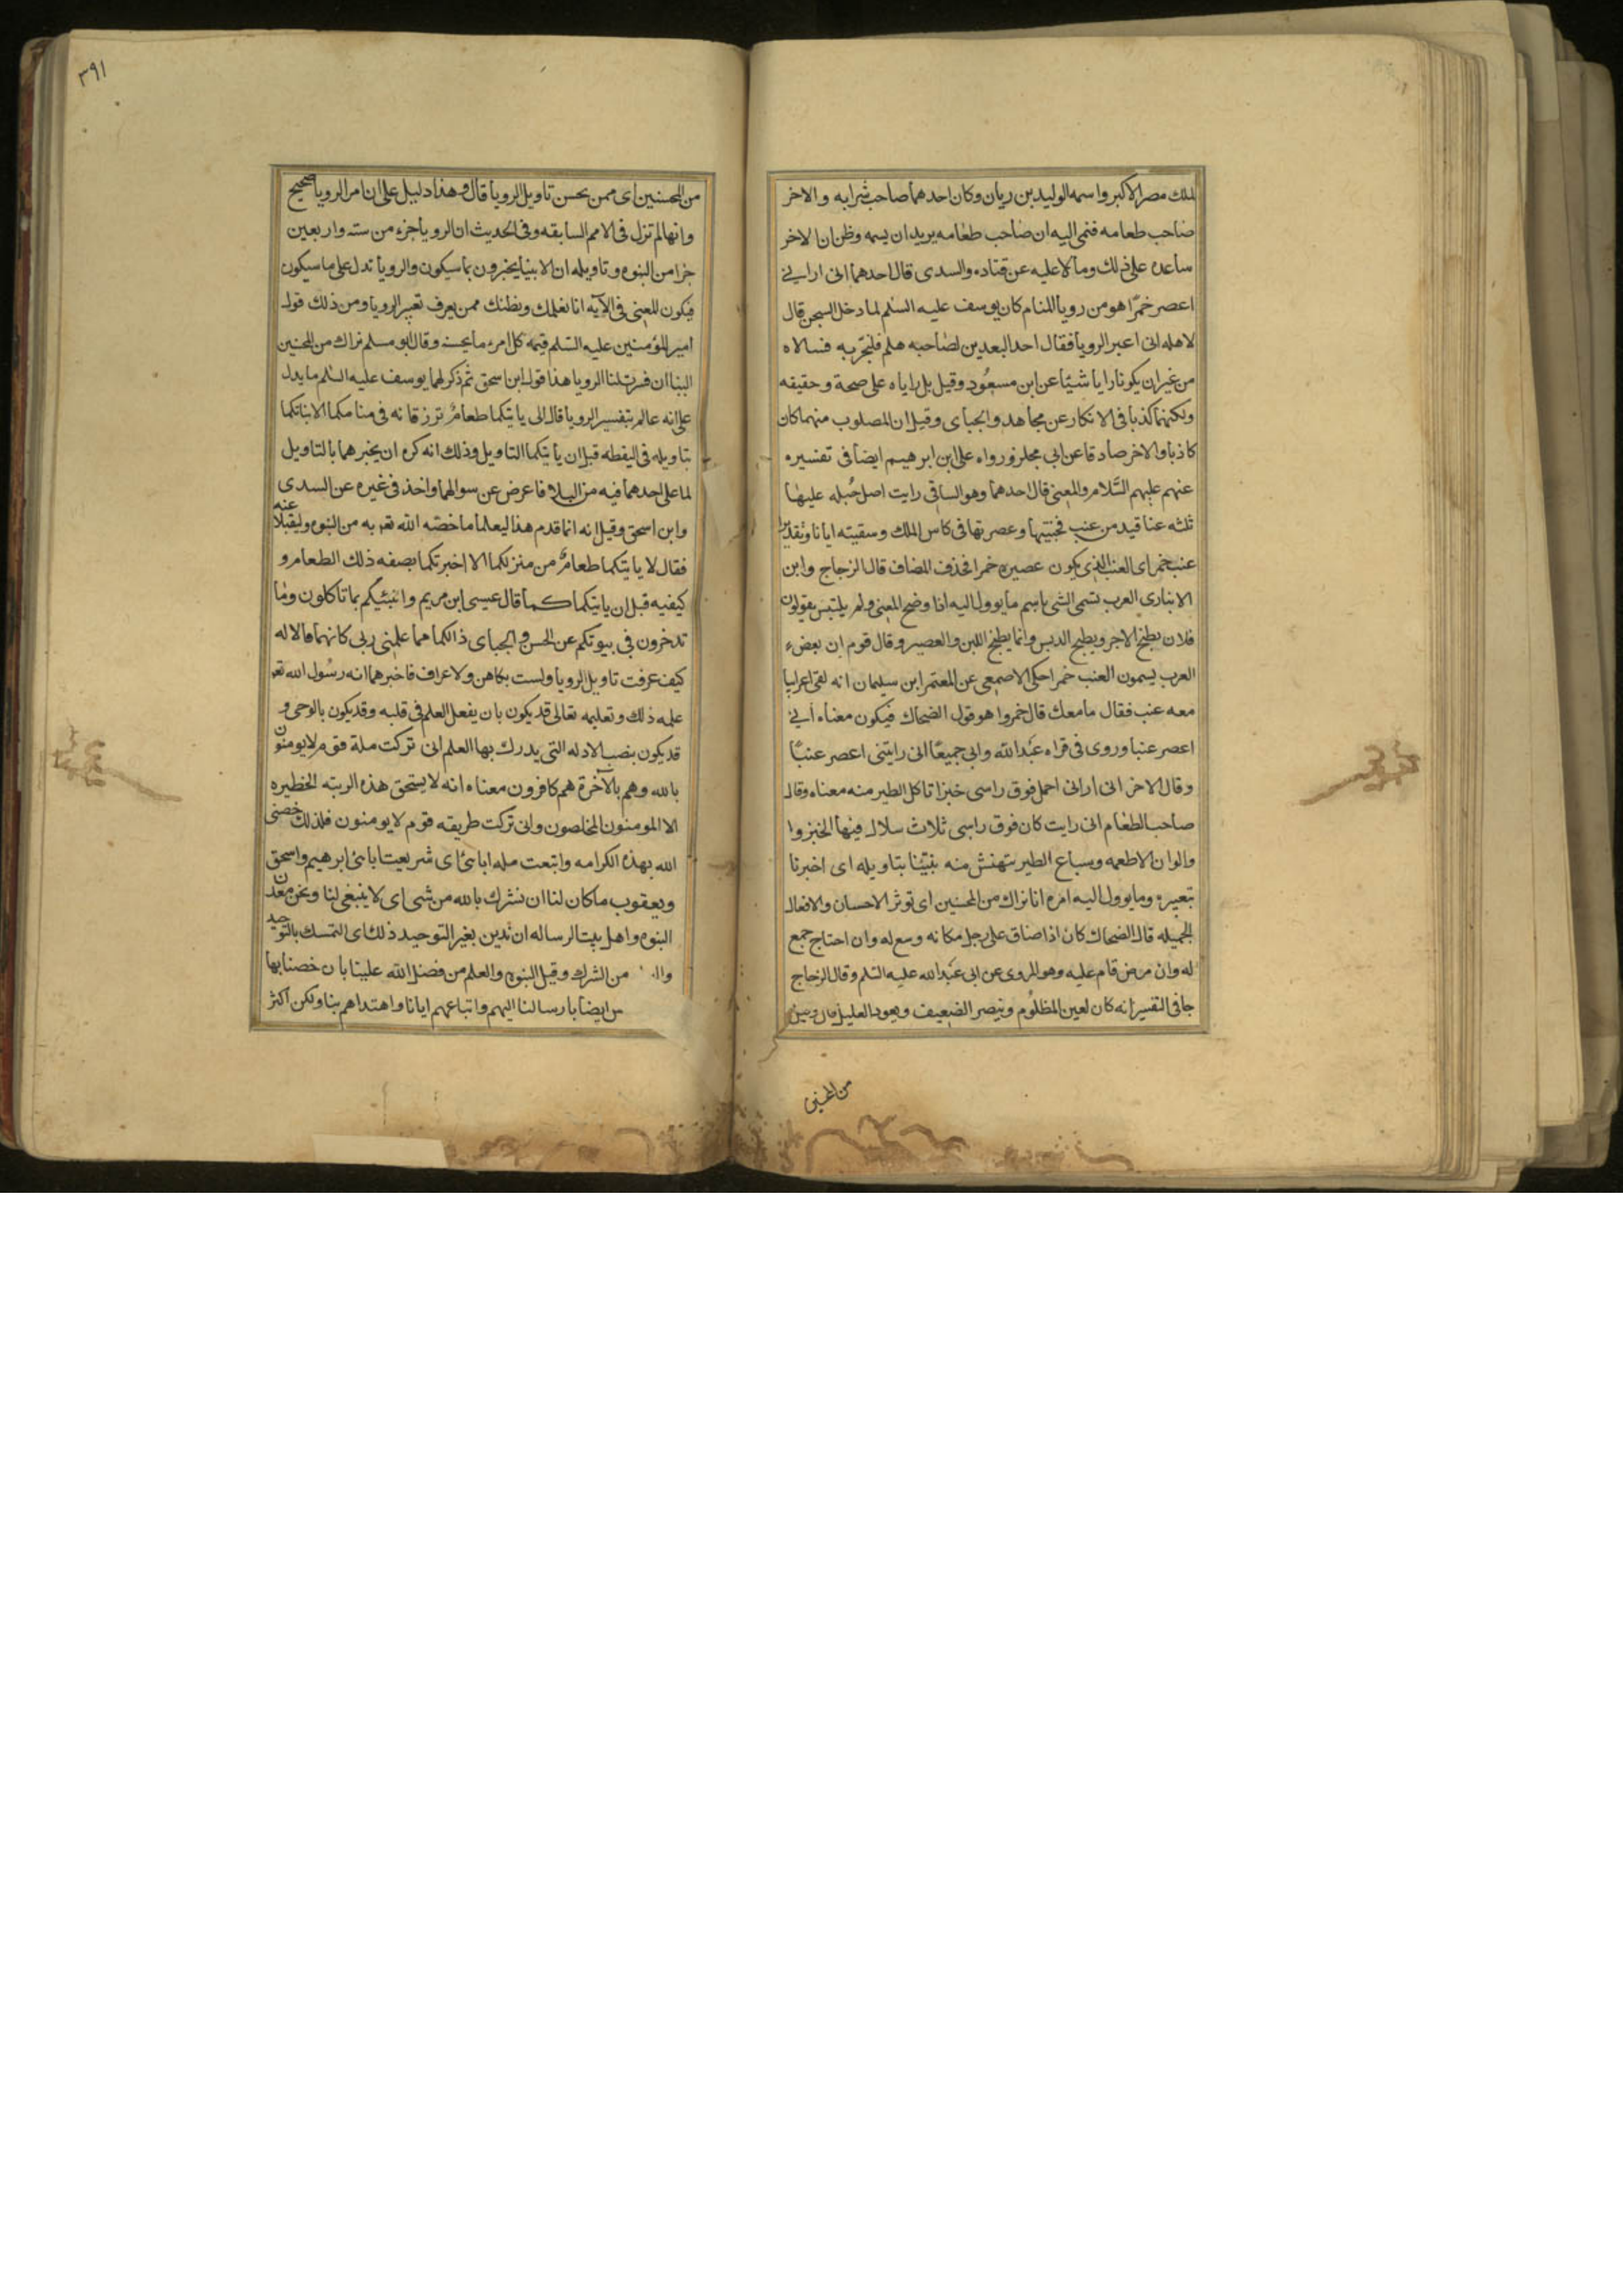 الملك مصر الاكبر واسمه الوليد بن ريان وكان احدهما صاحب شرابه والاخر
صاحب طعامه فنمى اليه ان صاحب طعامه يريد ان يسمه وظن ان الاخر
ساعده على ذلك ومالاه عليه عن قتاده والسدى قال احدهما انى ارانى
اعصر خمرًا هو من رويا المنام كان يوسف عليه السلم لما دخل السجن قال
لاهله انى اعبر الرويا فقال احد العبدين لصاحبه هلم فلنجربه فسالاه
من غير ان يكونا رايا شيًا عن ابن مسعُود وقيل بل رايا على صحة وحقيقه
ولكنهما كذبا فى الانكار عن مجاهد والجباى وقيل ان المصلوب منهما كان
كاذبا والاخر صادقا عن ابى مجلز ورواه على ابن ابرهيم ايضا فى تفسيره
عنهم عليهم السَّلام والمعنى قال احدهما وهو الساقى رايت اصل حُبله عليها
ثلثه عناقيد من عنب فجنيتها وعصرتها فى كاس الملك وسقيته اياها وتقديره
عنب خمر اى العنب الذى يكون عصيره خمرا فحذف المضاف قال الزجاج وابن
الانبارى العرب تسمى الشى باسم ما يوول اليه اذا وضح المعنى ولم يلتبس يقولون
فلان يطبخ الاجر ويطبخ الدبس وانما يطبخ اللبن والعصير وقال قوم ان بعض
العرب يسمون العنب خمرا حكى الاصمعى عن المعتمر ابن سليمان انه لقى اعرابيا
معه عنب فقال ما معك قال خمر وا هو قول الضحاك فيكون معناه انى
اعصر عنبا وروى فى قراه عَبد الله وابى جميعًا انى رايتنى اعصر عنبًا
وقال الاخر انى ارانى احمل فوق راسى خبزا تاكل الطير منه معناه وقال
صاحب الطعام انى رايت كان فوق راسى ثلاث سلال فيها الخبز وا
والوان الاطعمه وسباع الطير تنهش منه نبئنا بتاويله اى اخبرنا
تعبيره وما يوول اليه امره انا نراك من المحسنين اى توثر الاحسان والافعال
الجميله قال الضحاك كان اذا ضاق على رجل مكانه وسع له وان احتاج جمع
له وان مرض قام عليه وهو المروى عن ابى عَبد الله عليه السلم وقال الزجاج
جا فى التفسير انه كان يعين المظلُوم وينصر الضعيف ويعود العليل قال وقيل
من المحسنين
٣٩١
من المحسنين اى ممن يحسن تاويل الرويا قال وهذا دليل على ان امر الرويا صحيح
وانها لم تزل فى الامم السابقه وفى الحديث ان الرويا جزء من سته واربعين
جزا من النبوه وتاويله ان الانبيا يخبرون بما سيكون والرويا تدل على ما سيكون
فيكون المعنى فى الآيه انا نعلمك ونظنك ممن يعرف تعبير الرويا ومن ذلك قول
امير المؤمنين عليه السلم قيمة كل امرء ما يحسنه وقال ابو مسلم نراك من المحسنين
الينا ان فسرت لنا الرويا هذا قول ابن اسحق ثم ذكر لهما يوسف عليه السلم ما يدل
على انه عالم بتفسير الرويا قال لا ياتيكما طعامٌ ترزقانه فى منامكما الا نباتكما
بتاويله فى اليقظه قبل ان ياتيكما التاويل وذلك انه كره ان يخبرهما بالتاويل
لما على احدهما فيه من البلا فاعرض عن سوالهما واخذ فى غيره عن السدى
وابن اسحق وقيل انه انما قدم هذا ليعلما ما خصه الله تعه به من النبوه وليقبلا عنه
فقال لا ياتيكما طعامٌ من منزلكما الا اخبرتكما بصفه ذلك الطعام و
كيفيه قبل ان ياتيكما كما قال عيسى ابن مريم وانبئكم بما تاكلون وما
تدخرون فى بيوتكم عن الحسن والجباى ذالكما مما علمنى ربى كانهما قالا له
كيف عرفت تاويل الرويا ولست بكاهن ولا عراف فاخبرهما انه رسُول الله تعه
علمه ذلك وتعليمه تعالى قد يكون بان يفعل العلم فى قلبه وقد يكون بالوحى و
قد يكون بنصب الادله التى يدرك بها العلم انى تركت ملة قوم لا يومنون
بالله وهم بالآخرة هم كافرون معناه انه لا يستحق هذه الرتبه الخطيره
الا المومنون المخلصون وانى تركت طريقه قوم لا يومنون فلذلك خصنى
الله بهذه الكرامه واتبعت مله اباى اى شريعت اباى ابرهيم واسحق
ويعقوب ما كان لنا ان نشرك بالله من شى اى لا ينبغى لنا ونحن معدن
النبوه واهل بيت الرساله ان ندين بغير التوحيد ذلك اى التمسك بالتوحيد
من الشرك وقيل النبوه والعلم من فضل الله علينا بان خصنا بها
ايضا بارسالنا اليهم واتباعهم ايانا واهتداهم بنا ولكن اكثر